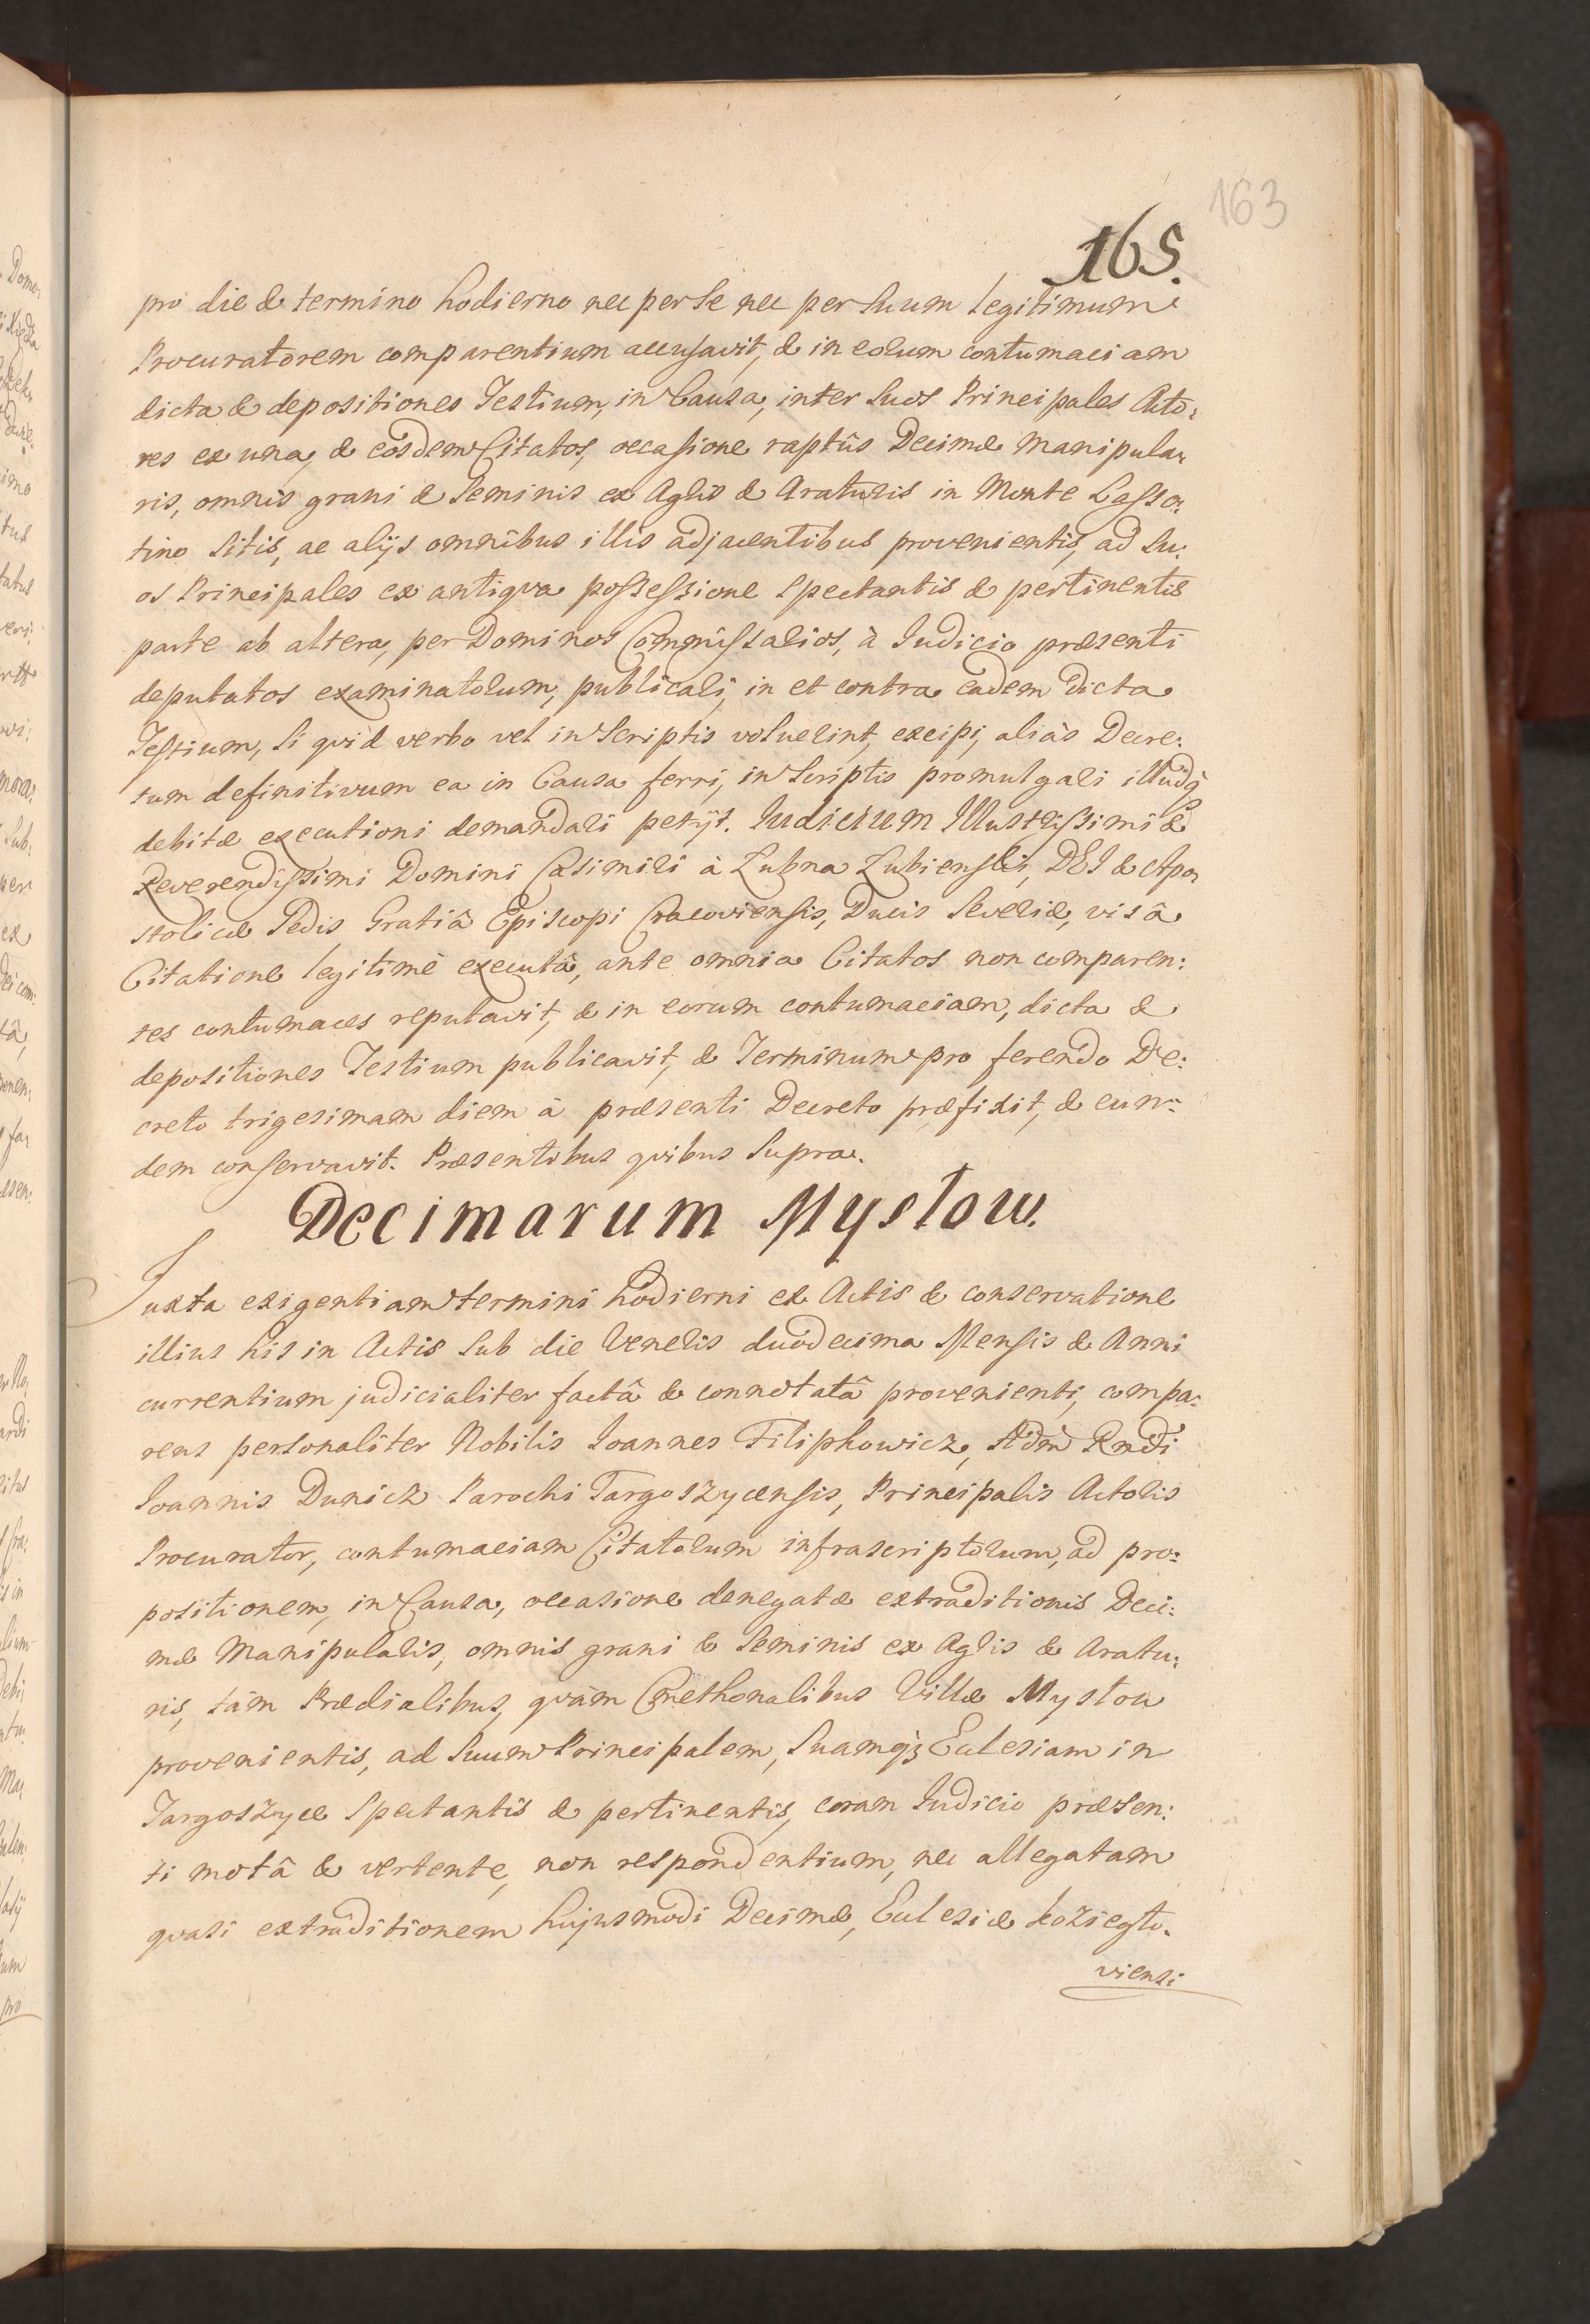 163
165.
pro die & termino hodierno nec per se nec per suum legitimum
Procuratorem comparentium accusavit, & in eorum contumaciam
dicta & depositiones Testium, in Causa, inter suos Principales Acto:
res ex una, & eosdem Citatos, occasione raptûs Decimæ Manipula:
ris, omnis grani & seminis ex Agris & Araturis in Monte Lasso:
tino sitis, ac alijs omnibus illis adjacentibus provenientis, ad su:
os Principales ex antiqva possessione spectantis & pertinentis
parte ab altera, per Dominos Commissarios, à Iudicio præsenti
deputatos examinatorum, publicari, in et contra eadem dicta
Testium, si qvid verbo vel in scriptis voluerint, excipi, aliàs Decre:
tum definitivum ea in Causa ferri, in scriptis promulgari illudq̃
debitæ executioni demandari petijt. Iudicium Illustrissimi &
Reverendissimi Domini Casimiri à Łubna Łubienski, DEI & Apo:
stolicæ Sedis Gratiâ Episcopi Cracoviensis, Ducis Severiæ, visâ
Citatione legitimè executâ, ante omnia Citatos non comparen:
tes contumaces reputavit, & in eorum contumaciam, dicta &
depositiones Testium publicavit, & Terminum pro ferendo De:
creto trigesimam diem à præsenti Decreto præfixit, & eun:
dem conservavit. Præsentibus qvibus supra.
Decimarum Mysłow.
Iuxta exigentiam termini hodierni ex Actis & conservatione
illius his in Actis sub die Veneris duodecima Mensis & Anni
currentium judicialiter factâ & connotatâ provenienti, compa:
rens personaliter Nobilis Ioannes Filipkowicz, Adm̃ Rndi
Ioannis Dunicz Parochi Targoszycensis, Principalis Actoris
Procurator, contumaciam Citatorum infrascriptorum, ad pro:
positionem, in Causa, occasione denegatæ extraditionis Deci:
mæ Manipularis, omnis grani & seminis ex Agris & Aratu:
ris, tàm Prædialibus, qvàm Cmethonalibus Villæ Mysłow
provenientis, ad suum Principalem, suamq̃ Ecclesiam in
Targoszyce spectantis & pertinentis, coram Iudicio præsen:
ti motâ & vertente, non respondentium, nec allegatam
qvasi extraditionem hujusmodi Decimæ, Ecclesiæ Koziegło:
viensi